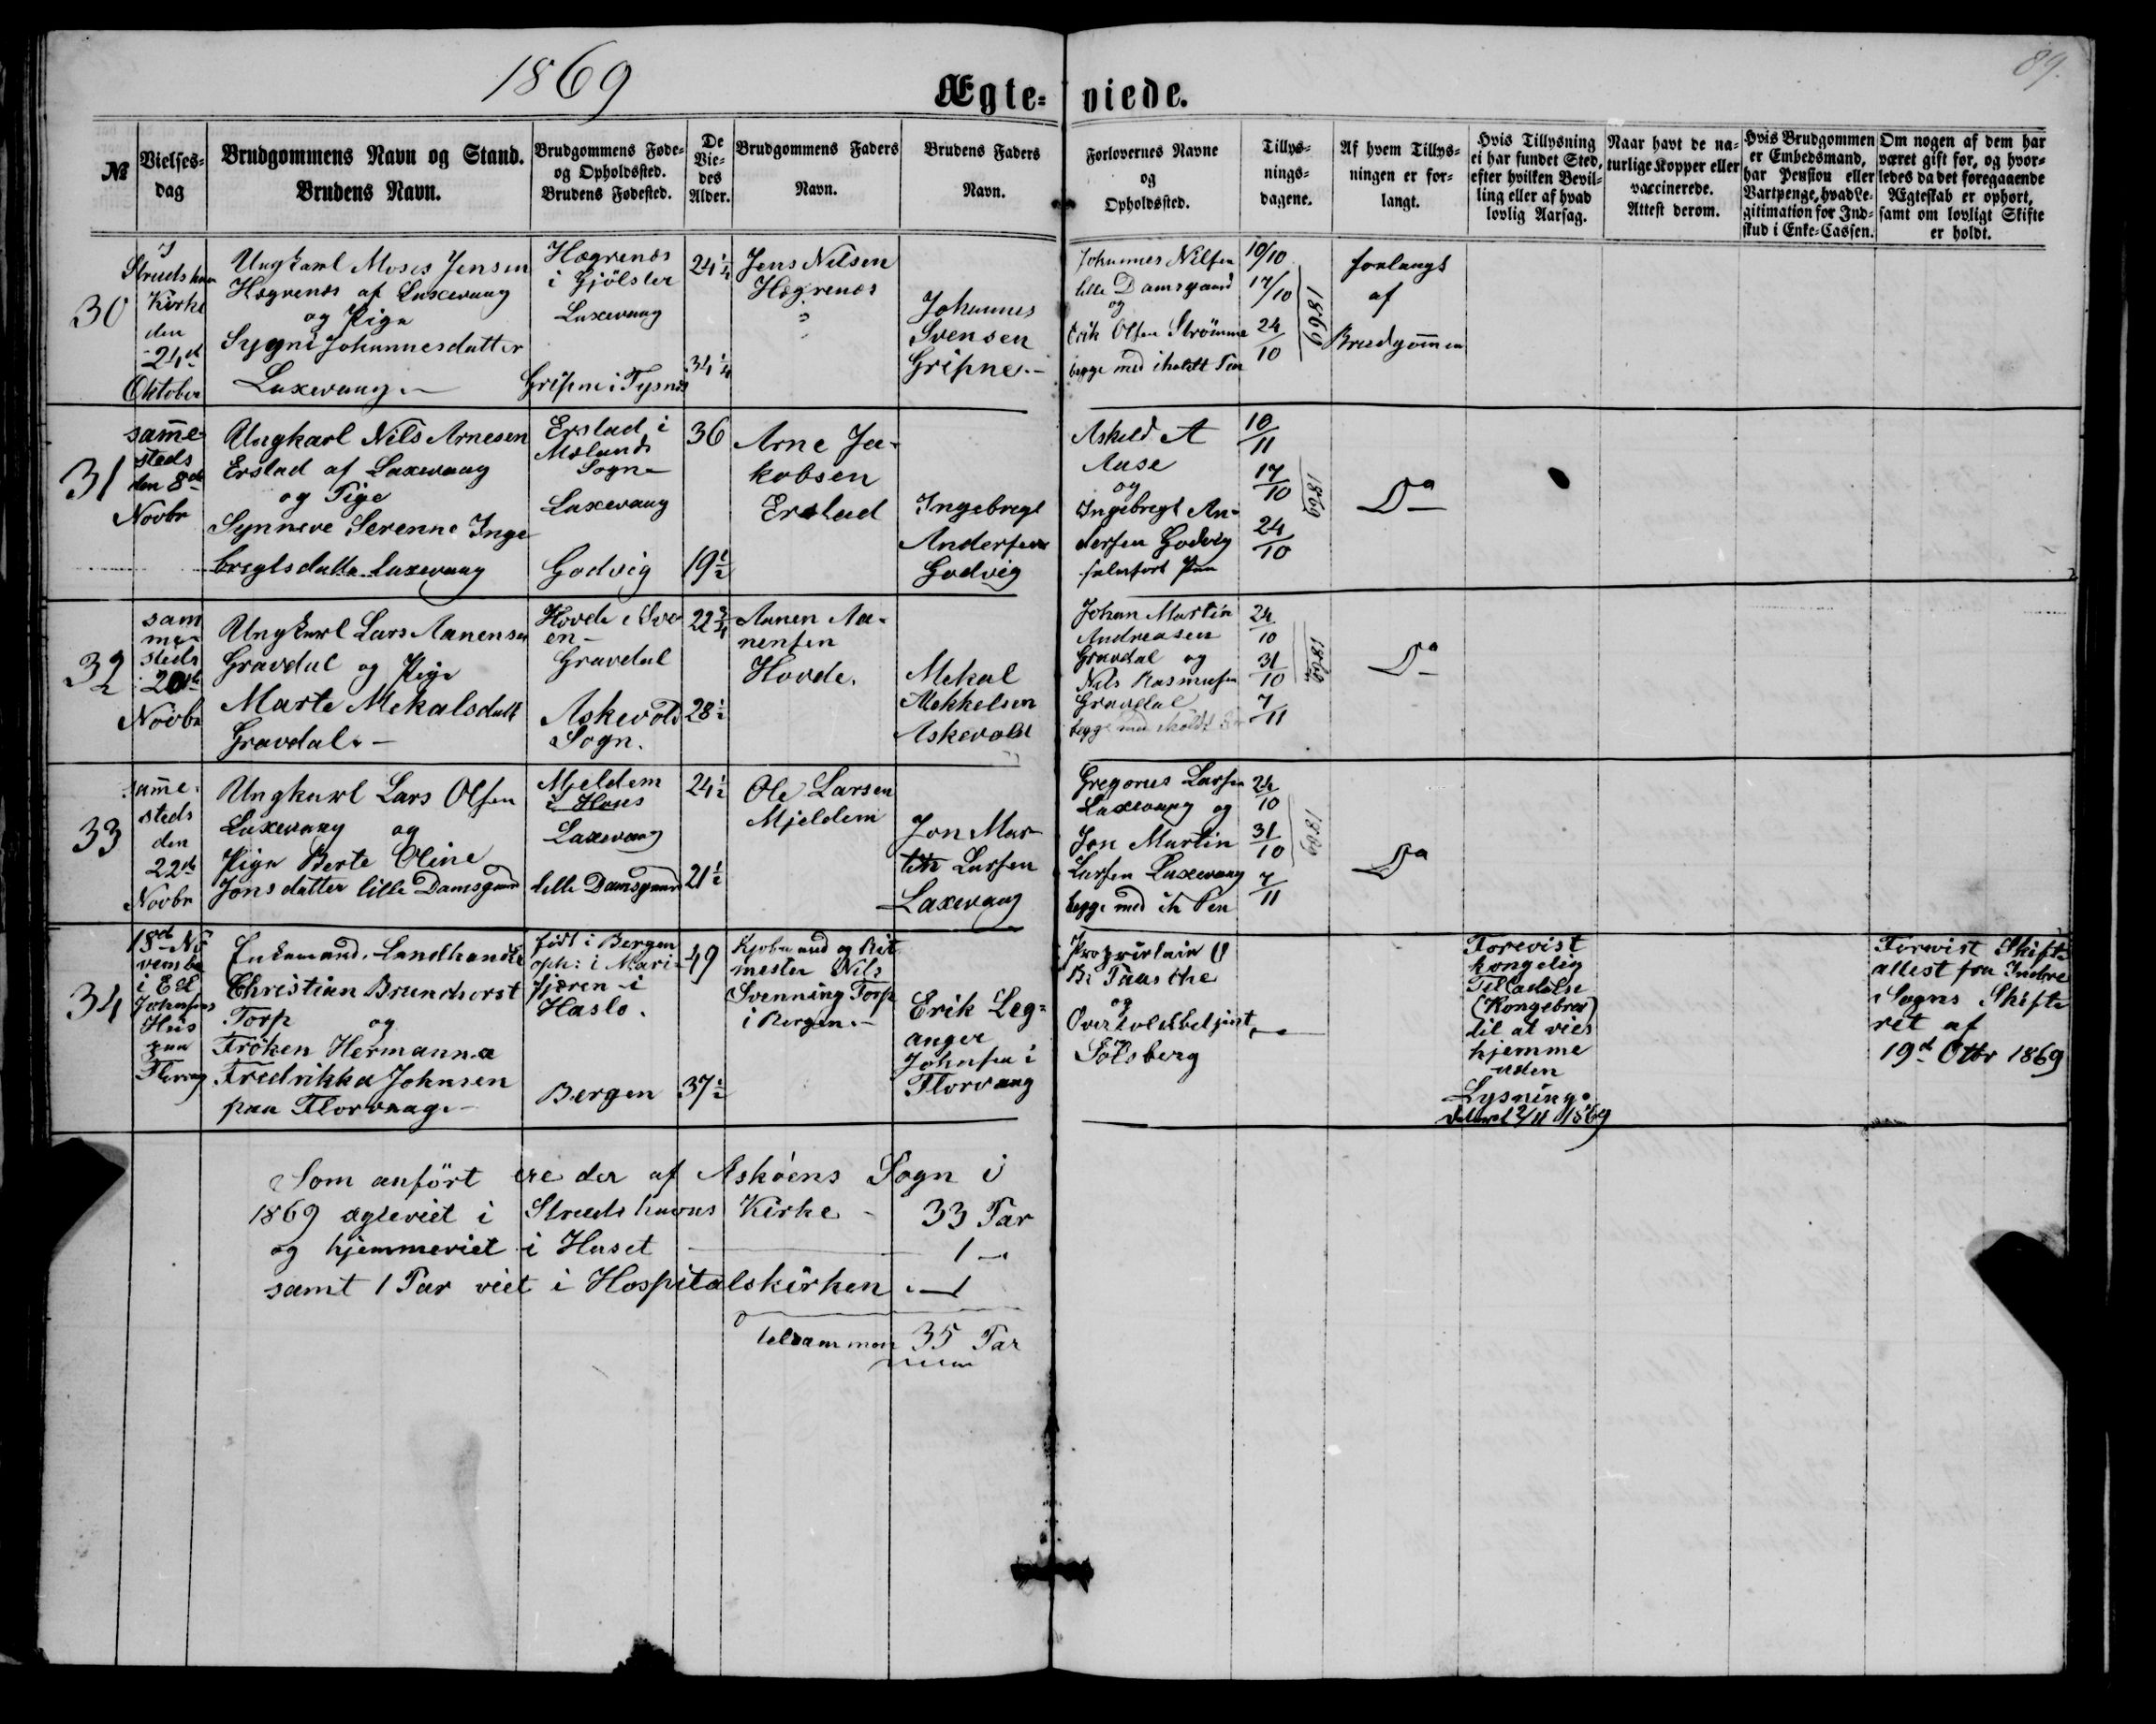 1869
Ægte-
viede.
89.
№
Vielses-
dag
Brudgommens Navn og Stand.
Brudens Navn.
Brudgommens Føde-
og Opholdssted.
Brudens Fødested.
De
Vie-
des
Alder.
Brudgommens Faders
Navn.
Brudens Faders
Navn.
Forlovernes Navne
og
Opholdssted.
Tillys-
nings-
dagene.
Af hvem Tillys-
ningen er for-
langt.
Hvis Tillysning
ei har fundet Sted,
efter hvilken Bevil-
ling eller af hvad
lovlig Aarsag.
Naar havt de na-
turlige Kopper eller
vaccinerede.
Attest derom.
Hvis Brudgommen
er Embedsmand,
har Pension eller
Vartpenge, hvad Le-
gitimation for Ind-
skud i Enke-Cassen.
Om nogen af dem har
været gift før, og hvor-
ledes da det foregaaende
Ægteskab er ophørt,
samt om lovligt Skifte
er holdt.
30
I
Kirke
den
24d
Oktober
Ungkarl Moses Jensen
Hægrenæs af Laxevaag
og Pige
Sygni Johannesdatter
Laxevaag.-
Hægrenæs
i Gjölster
Laxevaag
Gripne i Tysnæs
24 1/4
34 1/4
Jens Nilsen
Hægrenæs
Johannes
Svensen
Gripne.-
Johannes Nilsen
lille Damsgaard
og
Erik Olsen Strömme
begge med iholdt Pen
10/10
17/10
24/10
1869
forlangt
af
Brudgom̅en
31
sam̅e-
steds
den 8de
Novbr
Ungkarl Nils Arnesen
Erstad af Laxevaag
og Pige
Synneve Serenne Inge
bregtsdatter Laxevaag
Erstad i
Mølands
Sogn-
Laxevaag
Godvig
36
19 1/2
Arne Ja-
kobsen
Erstad
Ingebregt
Andersen
Godvig
Askeld A
Aase
og
Ingebregt An-
dersen Godvig
10/11
17/10
24/10
1869
Do
32
sam
me-
steds
20de
Novbr
Ungkarl Lars Aanensen
Gravdal og Pige
Marte Mekalsdatt
Gravdal.-
Hovde
en-
Gravdal
Askevold
Sogn.
22 3/4
28 1/2
Aanen Aa-
nensen
Hovde.
Mekal
Mekkelsen
Askevold
Johan Martin
Andreasen
Gravdal og
Nils Rasmusen
Gravdal
begge med iholdt Pen
24/10
31/10
7/11
1869
Do
33
sam̅e-
steds
den
22d
Novbr
Ungkarl Lars Olsen
Laxevaag og
Pige Berte Oline
Jonsdatter lille Damsgaard
Mjeldem
i Hous
Laxevaag
lille Damsgaard
24 1/2
21 1/2
Ole Larsen
Mjeldem
Jon Mar-
tin Larsen
Laxevaag
Gregorius Larsen
Laxevaag og
Jon Martin
Larsen Laxevaag
begge med ih Pen
24/10
31/10
7/11
1869
Do
34
18d No
vember
i Ed
Johnsens
Hus
paa
Florvaag
Enkemand, Landhandler
Christian Brunchorst
Torp og
Fröken Hermanna
Fredrikka Johnsen
paa Florvaag.-
født i Bergen
oph: i Mari-
fjæren i
Haslo.
Bergen
49
37 1/2
Kjøbmand og Rit
mester Nils
Svenning Torp
i Bergen.-
Erik Leg-
anger
Johnsen i
Florvaag
Proprietair O
B. Faasche
og
Overtoldbetjent
Solsberg
Forevist
kongelig
Tilladelse
(Kongebrev)
til at vies
hjemme
uden
Lysning.
dateret 2/11 1869
Forevist Skifte
attest fra Indre
Sogns Skifte
ret af
19d Otbr 1869
Som anfört ere der af Askøens Sogn i
1869 ægteviet i Strudshavns Kirke - 33 Par
og hjemmeviet i Huset - 1 -
samt 1 Par viet i Hospitalskirken - 1
tilsammen 35 Par